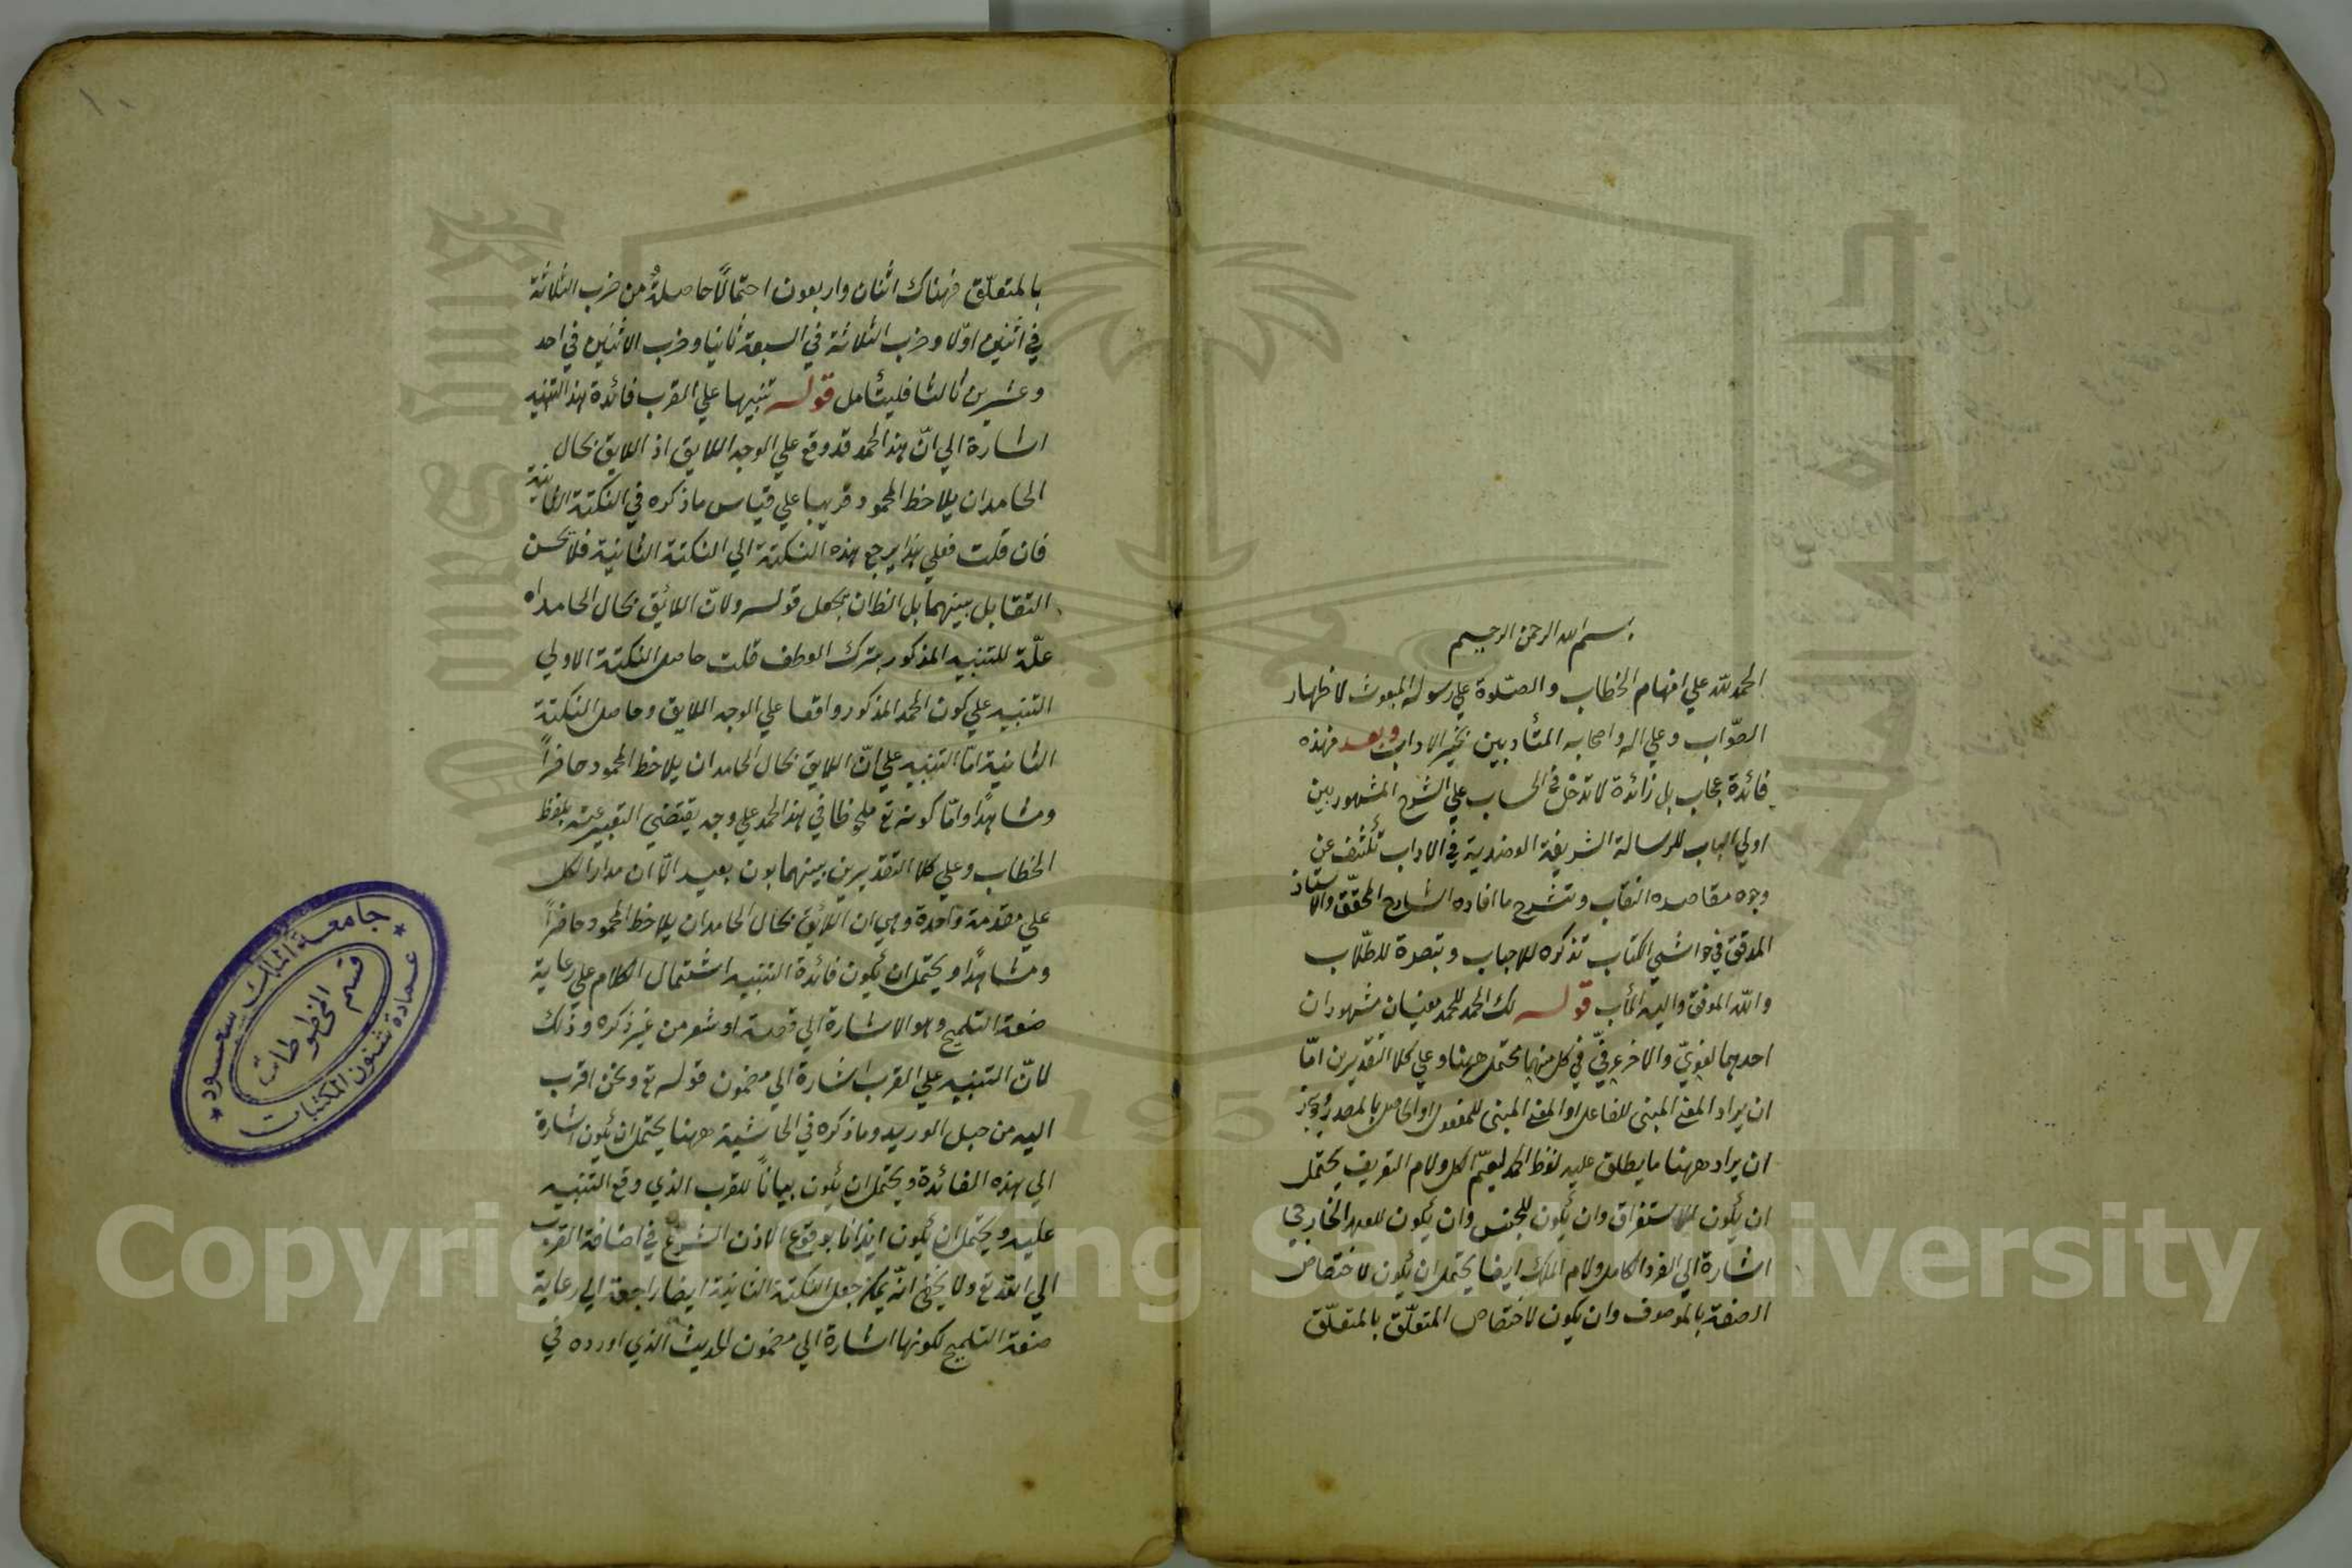 بسم الله الرحمن الرحيم
الحمد لله علي افهام الخطاب والصلوة علي رسوله المبعوث لاظهار
الصواب وعلي اله واصحابه المتأدبين بخير الاداب وبعد فهذه
فائدة عجاب بل زائدة لا تدخل في الحساب علي الشرح المشهور بين
اولي الباب للرسالة الشريفة العضدية في الاداب تكشف عن
وجوه مقاصده النقاب وتشرح ما افاده الشارح المحقق والاستاذ
المدقق في حواشي الكتاب تذكره للاحباب وتبصرة للطلاب
والله الموفق واليه المأب قوله لك الحمد للحمد معنيان مشهوران
احدهما لغوي والاخر عرفي في كل منهما يحتمل ههنا وعلي كلا التقديرين اما
ان يراد المعني المبني للفاعل او المعني المبني للمفعول او الحاصل بالمصدر ويجوز
ان يراد ههنا ما يطلق عليه لفظ الحمد ليعم الكل ولام التعريف يحتمل
ان يكون للاستغراق وان يكون للجنس وان يكون للعهد الخارجي
اشارة الي الفرد الكامل ولام الملك ايضا يحتمل ان يكون لاختصاص
الصفة بالموصوف وان يكون لاختصاص المتعلق بالمتعلق
١٠
بالمتعلق فهناك اثنان واربعون احتمالا حاصلة من ضرب الثلاثة
في اثنين اولا وضرب الثلاثة في السبعة ثانيا وضرب الاثنين في احد
وعشرين ثالثا فليتأمل قوله تنبيها علي القرب فائدة هذا التنبيه
اشارة الي ان هذا الحمد قد وقع علي الوجه اللايق اذ اللايق بحال
الحامد ان يلاحظ المحمود قريبا علي قياس ما ذكره في النكتة الثانية
فان قلت فعلي هذا يرجع هذه النكتة الي النكتة الثانية فلا يحسن
التقابل بينهما بل الظ ان يجعل قوله ولان اللائق بحال الحامد اه
علة للتنبيه المذكور بترك العطف قلت حاصل النكتة الاولي
التنبيه علي كون الحمد المذكور واقعا علي الوجه اللايق وحاصل النكتة
الثانية اما التنبيه علي ان اللايق بحال الحامد ان يلاحظ المحمود حاضرا
ومشاهدا واما كونه تع ملحوظا في هذا الحمد علي وجه يقتضي التعبير عنه بلفظ
الخطاب وعلي كلا التقديرين بينهما بون بعيد الا ان مدار الكل
علي مقدمة واحدة وهي ان اللائق بحال الحامد ان يلاحظ المحمود حاضرا
ومشاهدا ويحتمل ان يكون فائدة التنبيه اشتمال الكلام علي رعاية
صنعة التلميح وهو الاشارة الي قصة او شعر من غير ذكره وذلك
لان التنبيه علي القرب اشارة الي مضمون قوله تع ونحن اقرب
اليه من حبل الوريد وما ذكره في الحاشية ههنا يحتمل ان يكون اشارة
الي هذه الفائدة ويحتمل ان يكون بيانا للقرب الذي وقع التنبيه
عليه ويحتمل ان يكون ايذانا بوقوع الاذن الشرعي في اضافة القرب
الي الله تع ولا يخفي انه يمكن جعل النكتة الثانية ايضا راجعة الي رعاية
صنعة التلميح لكونها اشارة الي مضمون الحديث الذي اورده في
جامعة الملك سعود
قسم المخطوطات
عمادة شئون المكتبات
1957
Copyright © King Saud University